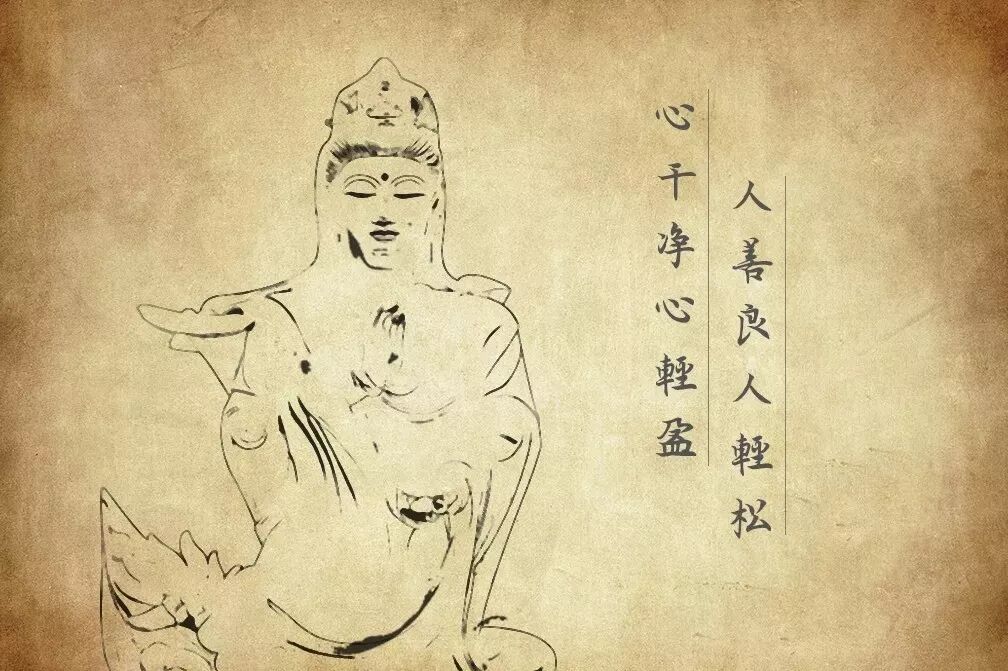 心干净心輕盈
人善良人輕松